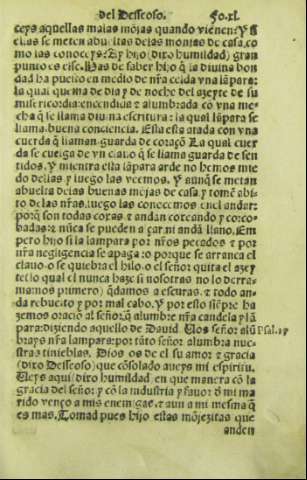 del Desseoso. Fo.xl.
ceys aquellas malas mõjas quando vienen? Y si
ellas se meten abueltas delas monjas de casa, co
mo las conoceys? Ay hijo (dixo humildad) gran
punto es esse. Has de saber hijo q̃ la diuina bon
dad ha puesto en medio de nr̃a celda vna lãpara:
la qual quema de dia y de noche del azeyte de su
misericordia: encendida z alumbrada cõ vna me
cha q̃ se llama diuina escritura: la qual lãpara se
llama, buena conciencia. Esta esta atada con vna
cuerda q̃ llaman guarda de coraçõ. La qual cuer
da se cuelga de vn clauo q̃ se llama guarda de sen
tidos. Y mientra esta lãpara arde no hemos mie
do dellas y luego las veemos. Y aunq̃ se metan
abueltas delas buenas mõjas de casa, y tomẽ abi
to delas nr̃as, luego las conocemos enel andar:
porq̃ son todas coxas z andan coxeando y corco-
badas: z nũca se pueden açar ni andã llano. Em
pero hijo si la lampara por nr̃os pecados z por
nr̃a negligencia se apaga: o porque se arranca el
clauo o se quiebra el hilo, o el señor quita el azey
te (lo qual el nunca haze si nosotras no lo derra-
mamos primero) q̃damos a escuras, z todo an-
da rebuelto y por mal cabo. Y por esto siẽpre ha
zemos oraciõ al señor q̃ alumbre nr̃a candela y lã
para: diziendo aquello de Dauid. Uos señor alũ Psal.17
brays nr̃a lampara: por tãto señor alumbra nue-
stras tinieblas. Dios os de el su amor z gracia
(dixo Desseoso) que cõsolado aueys mi espiritu.
Ueys aqui (dixo humildad) en que manera cõ la
gracia del señor z cõ la industria y fauor d̃ mi ma
rido venço a mis enemigas: z aun a mi mesma q̃
es mas. Tomad pues hijo estas mõjezitas que
anden